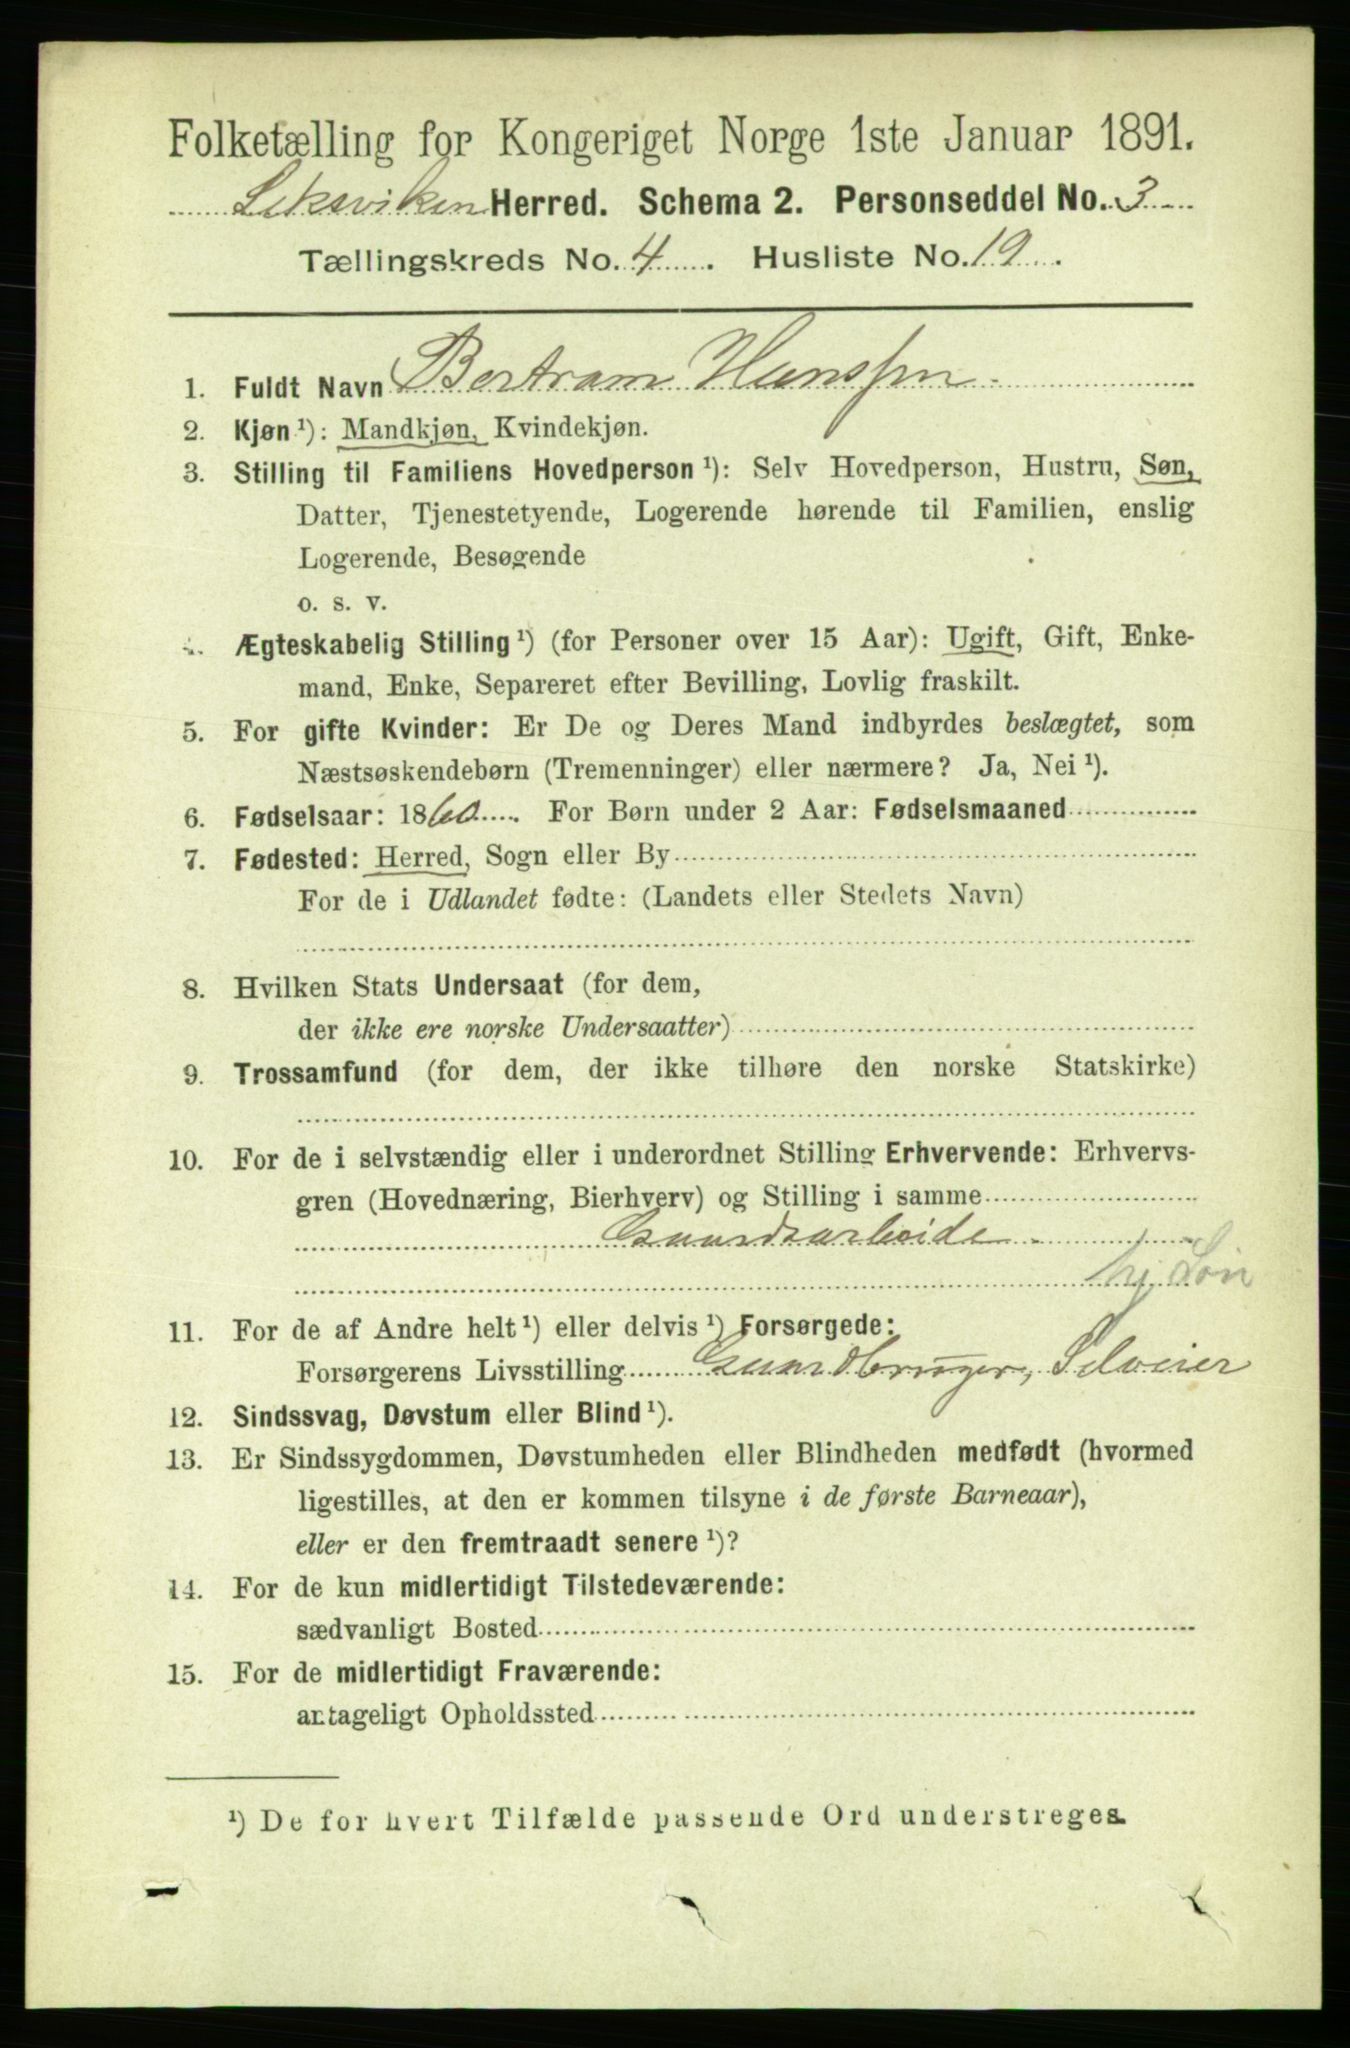 Folketælling for Kongeriget Norge 1ste Januar 1891.
Leksviken Herred. Schema 2. Personseddel No. 3
Tællingskreds No. 4. Husliste No. 19.
1. Fuldt Navn Bertram Hanssen
2. Kjøn ¹): Mandkjøn, Kvindekjøn.
3. Stilling til Familiens Hovedperson ¹): Selv Hovedperson, Hustru, Søn,
Datter, Tjenestetyende, Logerende hørende til Familien, enslig
Logerende, Besøgende
o. s. v.
4. Ægteskabelig Stilling ¹) (for Personer over 15 Aar): Ugift, Gift, Enke-
mand, Enke, Separeret efter Bevilling, Lovlig fraskilt.
5. For gifte Kvinder: Er De og Deres Mand indbyrdes beslægtet, som
Næstsøskendebørn (Tremenninger) eller nærmere? Ja, Nei ¹).
6. Fødselsaar: 1860. For Børn under 2 Aar: Fødselsmaaned
7. Fødested: Herred, Sogn eller By
For de i Udlandet fødte: (Landets eller Stedets Navn)
8. Hvilken Stats Undersaat (for dem,
der ikke ere norske Undersaatter)
9. Trossamfund (for dem, der ikke tilhøre den norske Statskirke)
10. For de i selvstændig eller i underordnet Stilling Erhvervende: Erhvervs-
gren (Hovednæring, Bierhverv) og Stilling i samme
Gaardsarbeide
hj. Søn
11. For de af Andre helt ¹) eller delvis ¹) Forsørgede:
Forsørgerens Livsstilling Gaardbruger, Selveier
12. Sindssvag, Døvstum eller Blind ¹).
13. Er Sindssygdommen, Døvstumheden eller Blindheden medfødt (hvormed
ligestilles, at den er kommen tilsyne i de første Barneaar),
eller er den fremtraadt senere ¹)?
14. For de kun midlertidigt Tilstedeværende:
sædvanligt Bosted
15. For de midlertidigt Fraværende:
antageligt Opholdssted
¹) De for hvert Tilfælde passende Ord understreges.